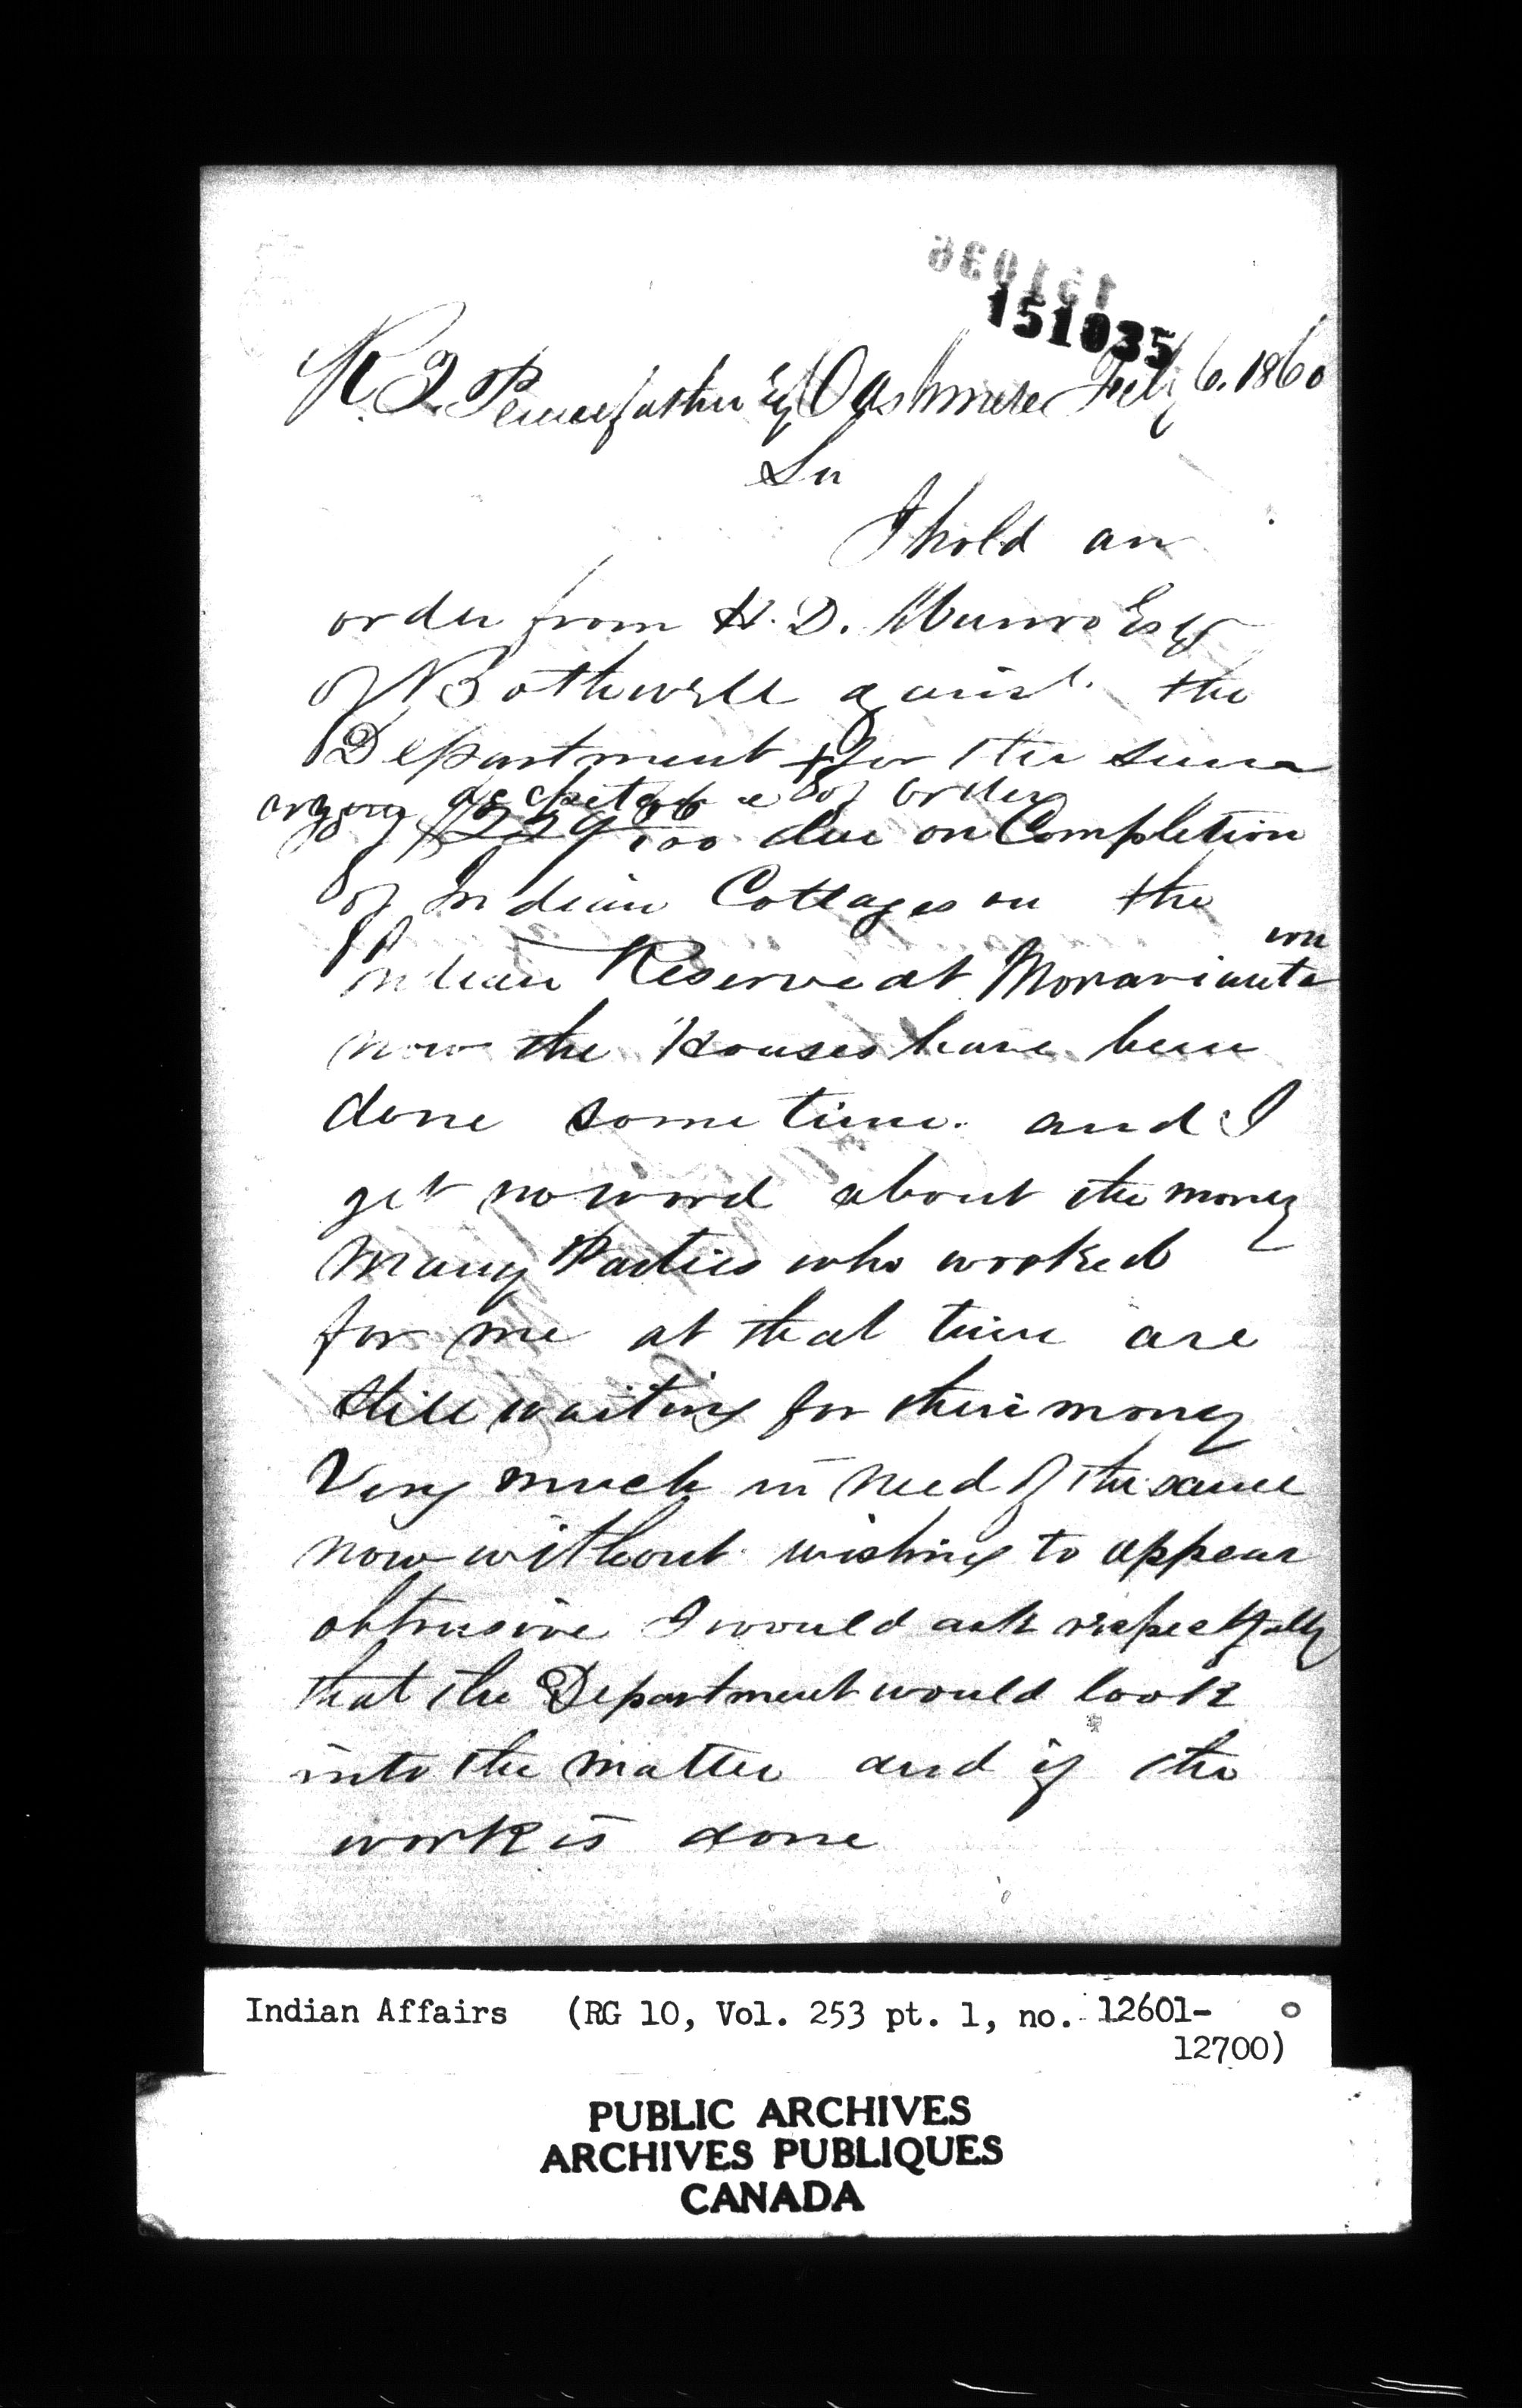 151036
151035
R. T. Pennefather Esq Cashmere Feby 6. 1860
Sir
I hold an
order from H. D. Munro Esq
of Bothwell against the
Department for the sum
of order
$229 66/100 due on Completion
of Indian Cottages on the
Indian Reserve at Moraviantown
now the Houses have been
done some time. and I
get no word about the money
Many Parties who worked
for me at that time are
still waiting for their money
Very much in need of the same
now without wishing to appear
obtrusive I would ask respectfully
that the Department would look
into the matter and if the
work is done
Indian Affairs (RG 10, Vol. 253 pt. 1, no. 12601-
12700)
PUBLIC ARCHIVES
ARCHIVES PUBLIQUES
CANADA